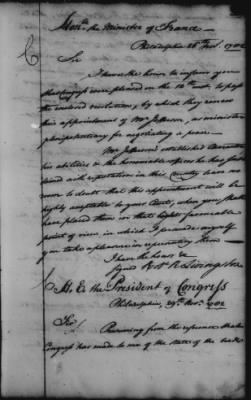 Hon.ble the Minister of France —
Philadelphia 26th Nov. 1782
Sir
I have the honor to inform you
that Congress were pleased on the 12th inst. to pass
the enclosed resolution, by which they renew
the appointment of Mr Jefferson, as minister
plenipotentiary for negotiating a peace —
Mr Jefferson's established Character
his abilities in the honourable offices he has sus-
tained with reputation in this Country leave no
room to doubt that this appointment will be
highly acceptable to your Court, when you shall
have placed them in that light favorable
point of view in which I persuade myself
you take a pleasure in representing them —
I have the honor &
signed Robt R Livingston
H. E. the President of Congress
Philadelphia, 29th Nov. 1782
Sir,
Presuming from the reference that
Congress has made to me of the state of the trade